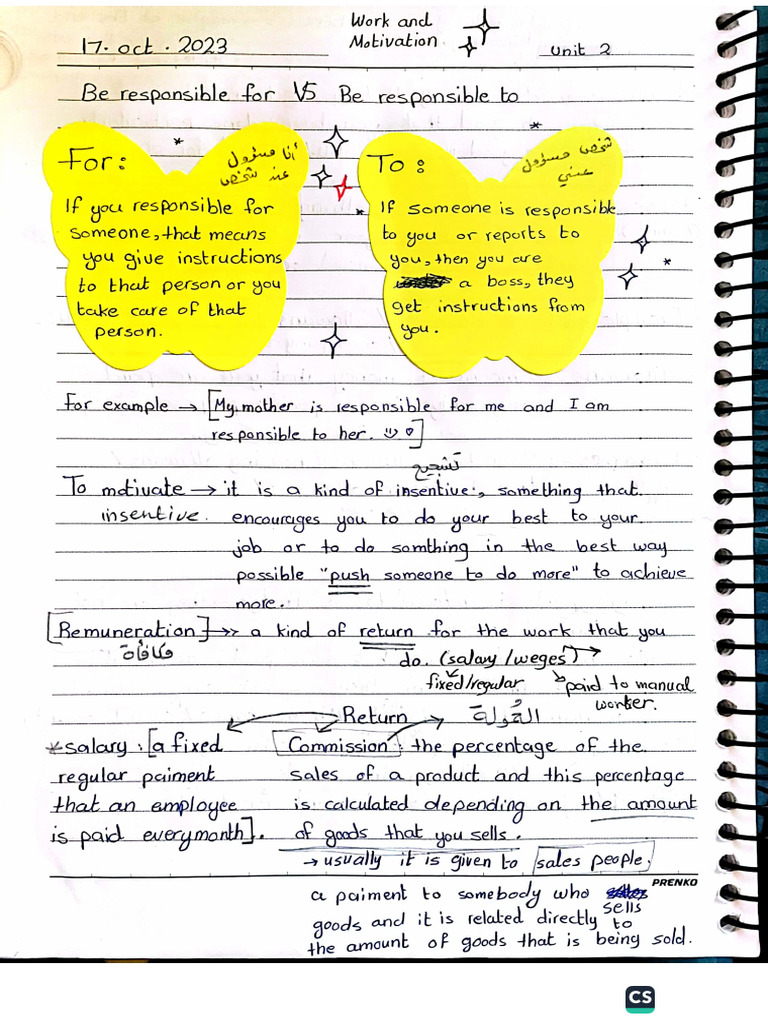 Work and
Motivation
17. oct. 2023
Unit 2
Be responsible for VS Be responsible to
For:
أنا مسؤول
عند شخص
If you responsible for
someone, that means
you give instructions
to that person or you
take care of that
person.
To:
شخص مسؤول
عني
If someone is responsible
to you or reports to
you, then you are
a boss, they
get instructions from
you.
For example → [My mother is responsible for me and I am
responsible to her. ☺ ♡]
تشجيع
To motivate → it is a kind of insentive:, something that
insentive. encourages you to do your best to your
job or to do somthing in the best way
possible "push someone to do more" to achieve
more.
[Remuneration] →> a kind of return for the work that you
مكافأة
do. (salary/weges)
fixed/regular
paid to manual
worker.
Return
*salary: [a fixed
regular paiment
that an employee
is paid everymonth].
Commission: the percentage of the
sales of a product and this percentage
is calculated depending on the amount
of goods that you sells.
→ usually it is given to sales people,
a paiment to somebody who
sells
goods and it is related directly to
the amount of goods that is being sold.
PRENKO
CS